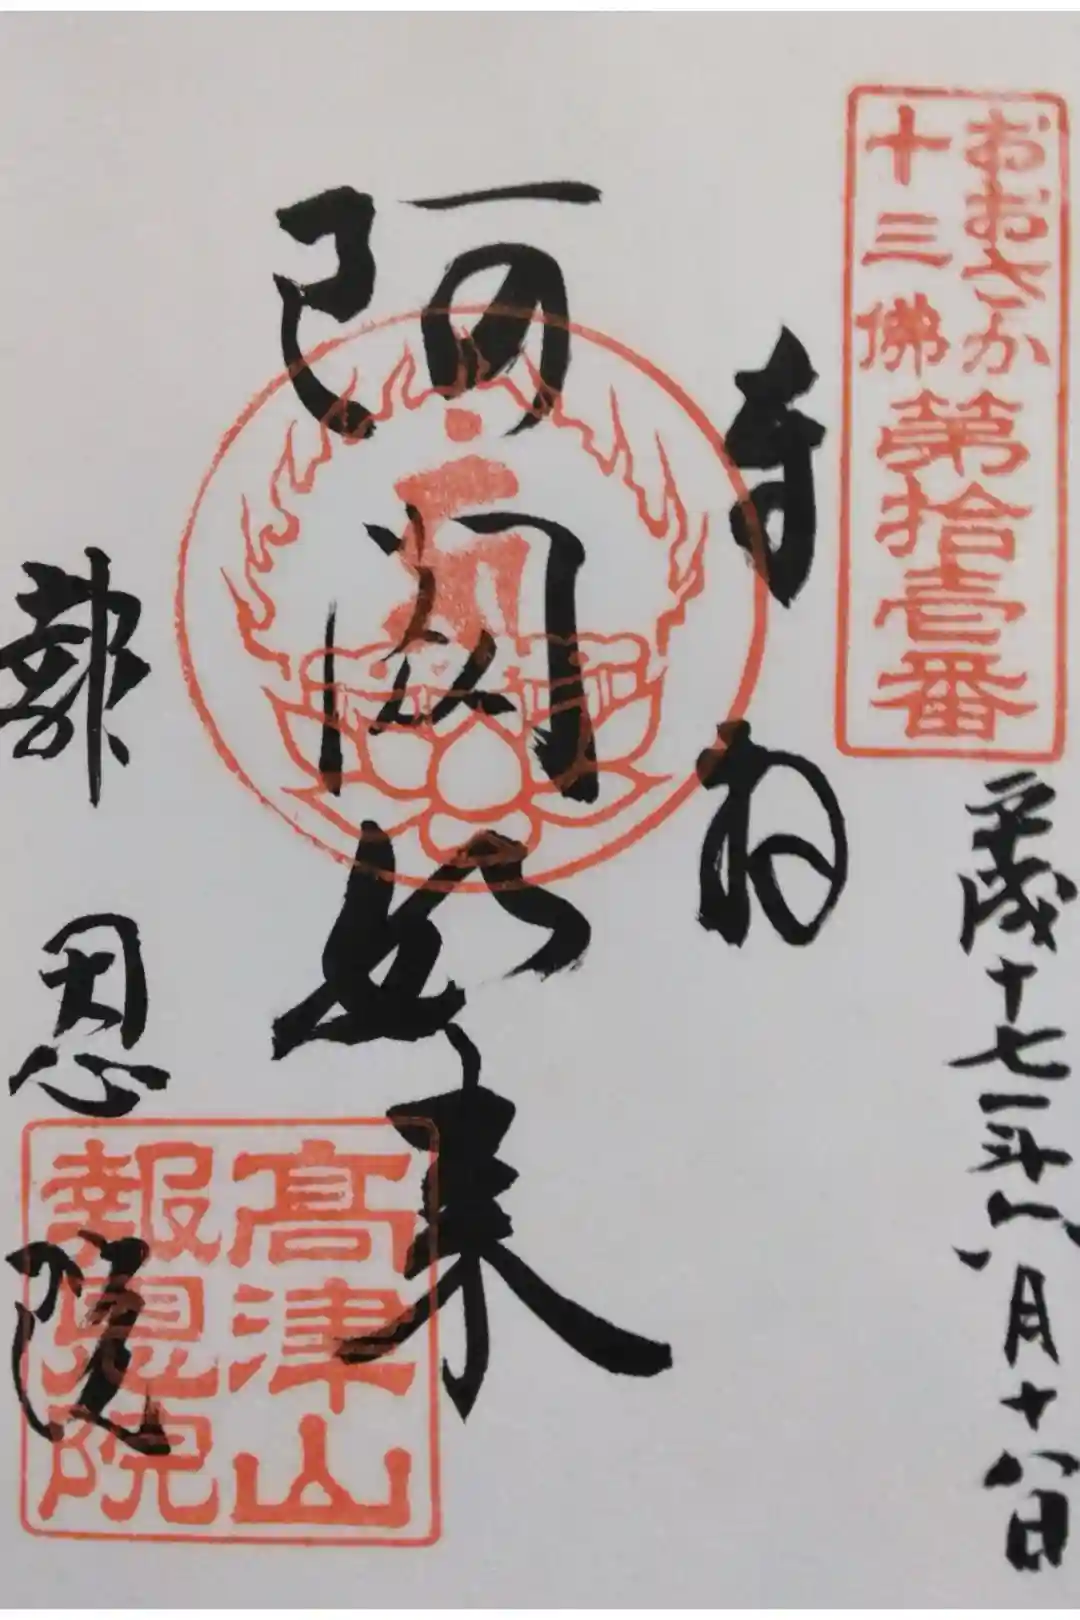 おおさか
十三佛
第拾壱番
平成十七年八月十八日
奉拝
阿閦如来
報恩院
高津山
報恩院